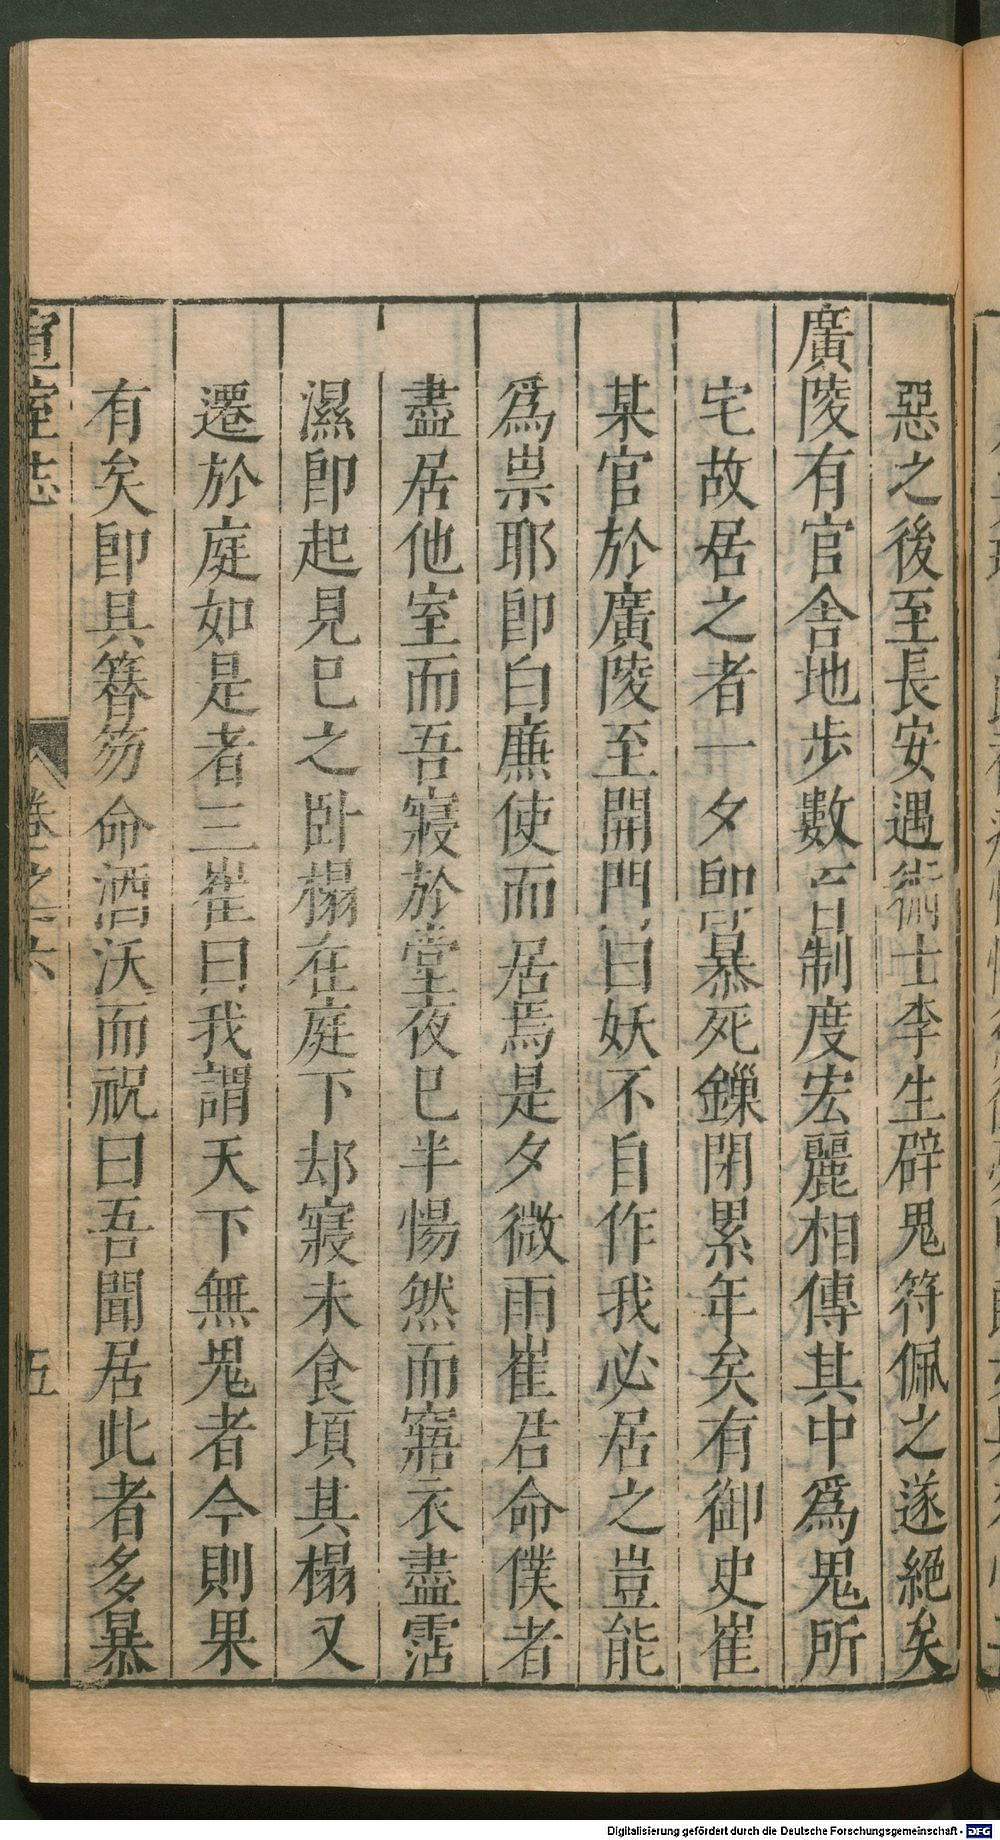 惡之後至長安遇術士李生辟鬼符佩之遂絕矣
廣陵有官舍地步數百制度宏麗相傳其中爲鬼所
宅故居之者一夕即暴死鏁閉累年矣有御史崔
某官於廣陵至開門曰妖不自作我必居之豈能
爲祟耶即白廉使而居焉是夕微雨崔君命僕者
盡居他室而吾寢於堂夜巳半惕然而寤衣盡霑
濕即起見巳之臥榻在庭下却寢未食頃其榻又
遷於庭如是者三崔曰我謂天下無鬼者今則果
有矣即具簪笏命酒沃而祝曰吾聞居此者多暴
宣室志
卷之六
五
Digitalisierung gefördert durch die Deutsche Forschungsgemeinschaft - DFG